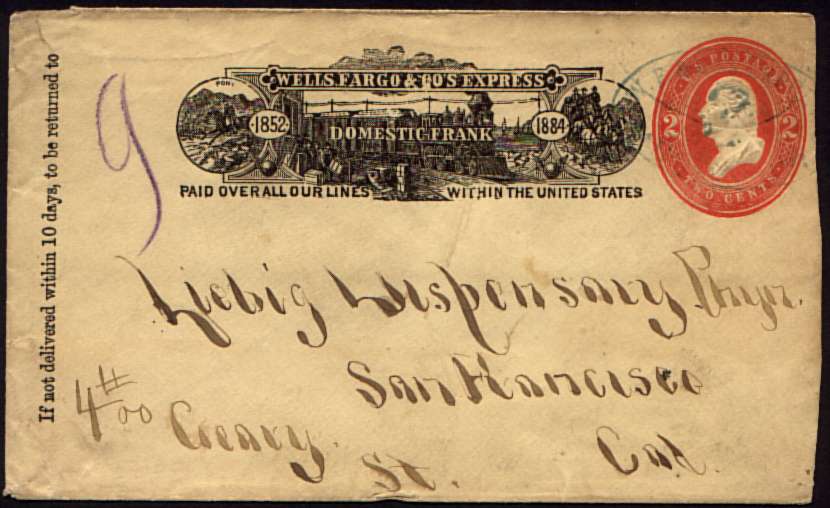 If not delivered within 10 days, to be returned to
9
PONY
WELLS, FARGO & CO'S EXPRESS
1852
DOMESTIC FRANK
1884
PAID OVER ALL OUR LINES WITHIN THE UNITED STATES
U.S. POSTAGE
2 2
TWO CENTS
Liebig Dispensary
San Francisco
400 Geary
St. Cal.